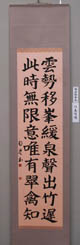 雲勢移峯緩泉聲出竹遲
此時無限意唯有翠禽知